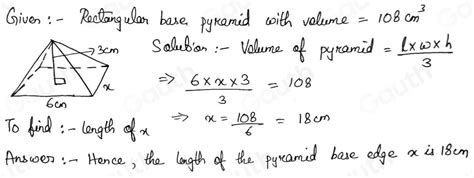 Given :- Rectangular base pyramid with volume = 108 cm³
3cm
x
6cm
Solution :- Volume of pyramid = l x w x h / 3
⇒ 6 x x x 3 / 3 = 108
To find :- length of x
⇒ x = 108 / 6 = 18cm
Answer :- Hence, the length of the pyramid base edge x is 18cm
Gauth